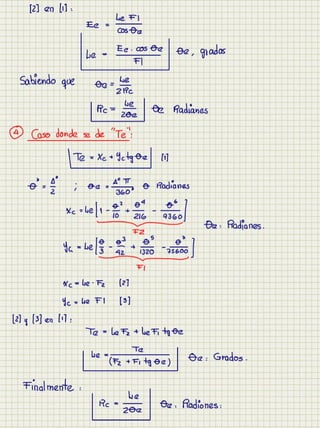 [2] en [1]:
Ee = Le F1 / cos θe
Le = Ee . cos θe / F1
θe, grados
Sabiendo que θe = Le / 2Rc
Rc = Le / 2θe
θe Radianes
④ Caso donde se de "Te":
Te = Xc + Yc tg θe [1]
θ° = Δ° / 2 ; θe = Δ° π / 360° θ Radianes
Xc = Le [1 - θ² / 10 + θ⁴ / 216 - θ⁶ / 9360]
F2
θe: Radianes.
Yc = Le [θ / 3 - θ³ / 42 + θ⁵ / 1320 - θ⁷ / 75600]
F1
Xc = Le . F2 [2]
Yc = Le F1 [3]
[2] y [3] en [1]:
Te = Le F2 + Le F1 tg θe
Le = Te / (F2 + F1 tg θe)
θe: Grados.
Finalmente:
Rc = Le / 2θe
θe: Radianes: